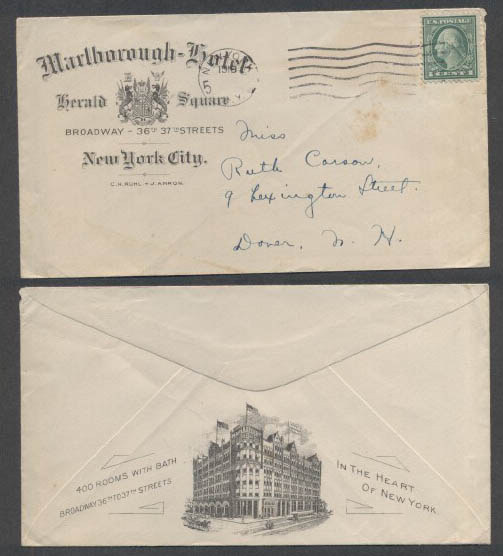 Marlborough-Hotel
Herald Square
BROADWAY - 36TH 37TH STREETS
New York City.
C.H. RUHL + J. AMRON.
U.S. POSTAGE
1 CENT 1
Miss
Ruth Carson,
9 Lexington Street.
Dover, N. H.
400 ROOMS WITH BATH
BROADWAY 36TH TO 37TH STREETS
IN THE HEART
OF NEW YORK.